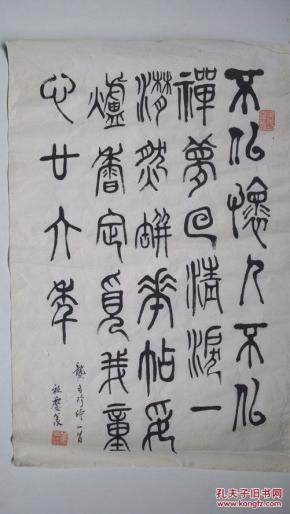 不佀懷人不佀
禪夢回清淚一
潸然缾華帖妥
爐香定覓我童
心廿六年
龔自珍詩一首
孔夫子旧书网